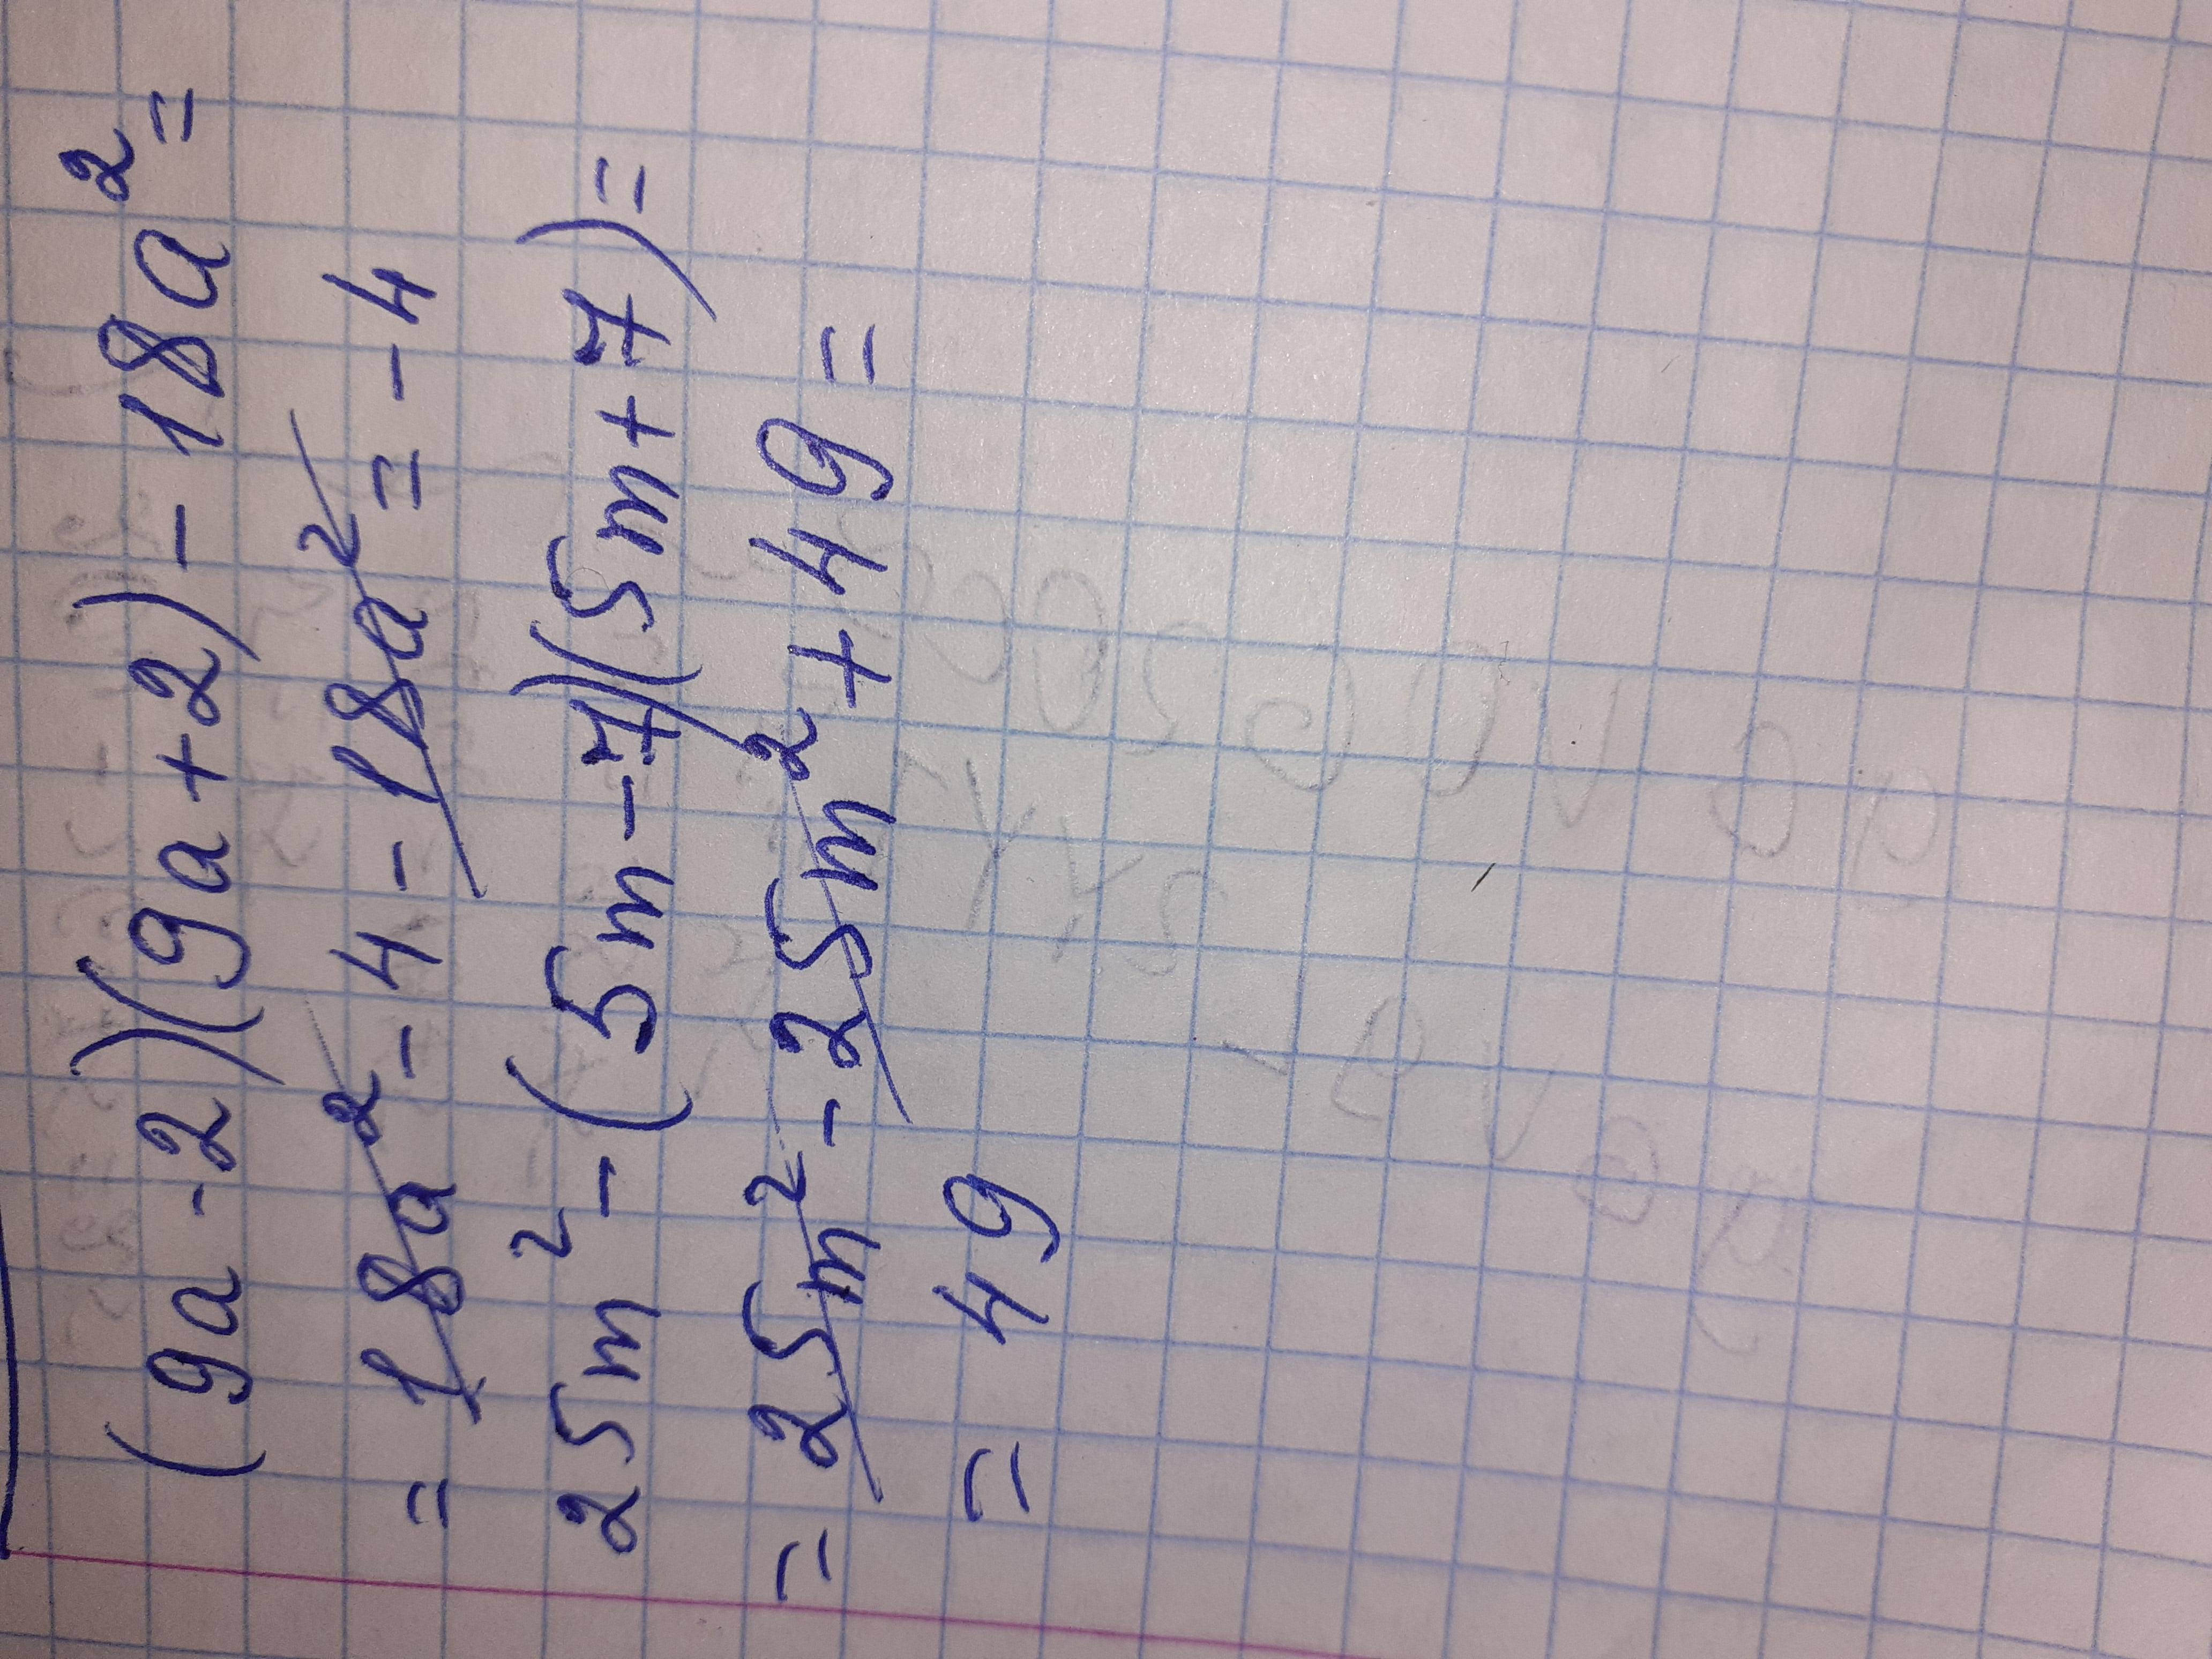 (9a-2)(9a+2)-18a²=
=18a²-4-18a²=-4
25m²-(5m-7)(5m+7)=
=25m²-25m²+49=
=49